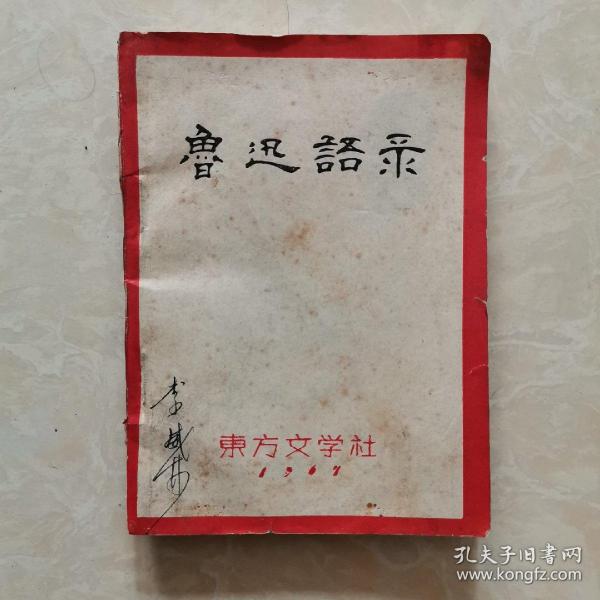 魯迅語录
李
東方文学社
1967
孔夫子旧書网
www.kongfz.com